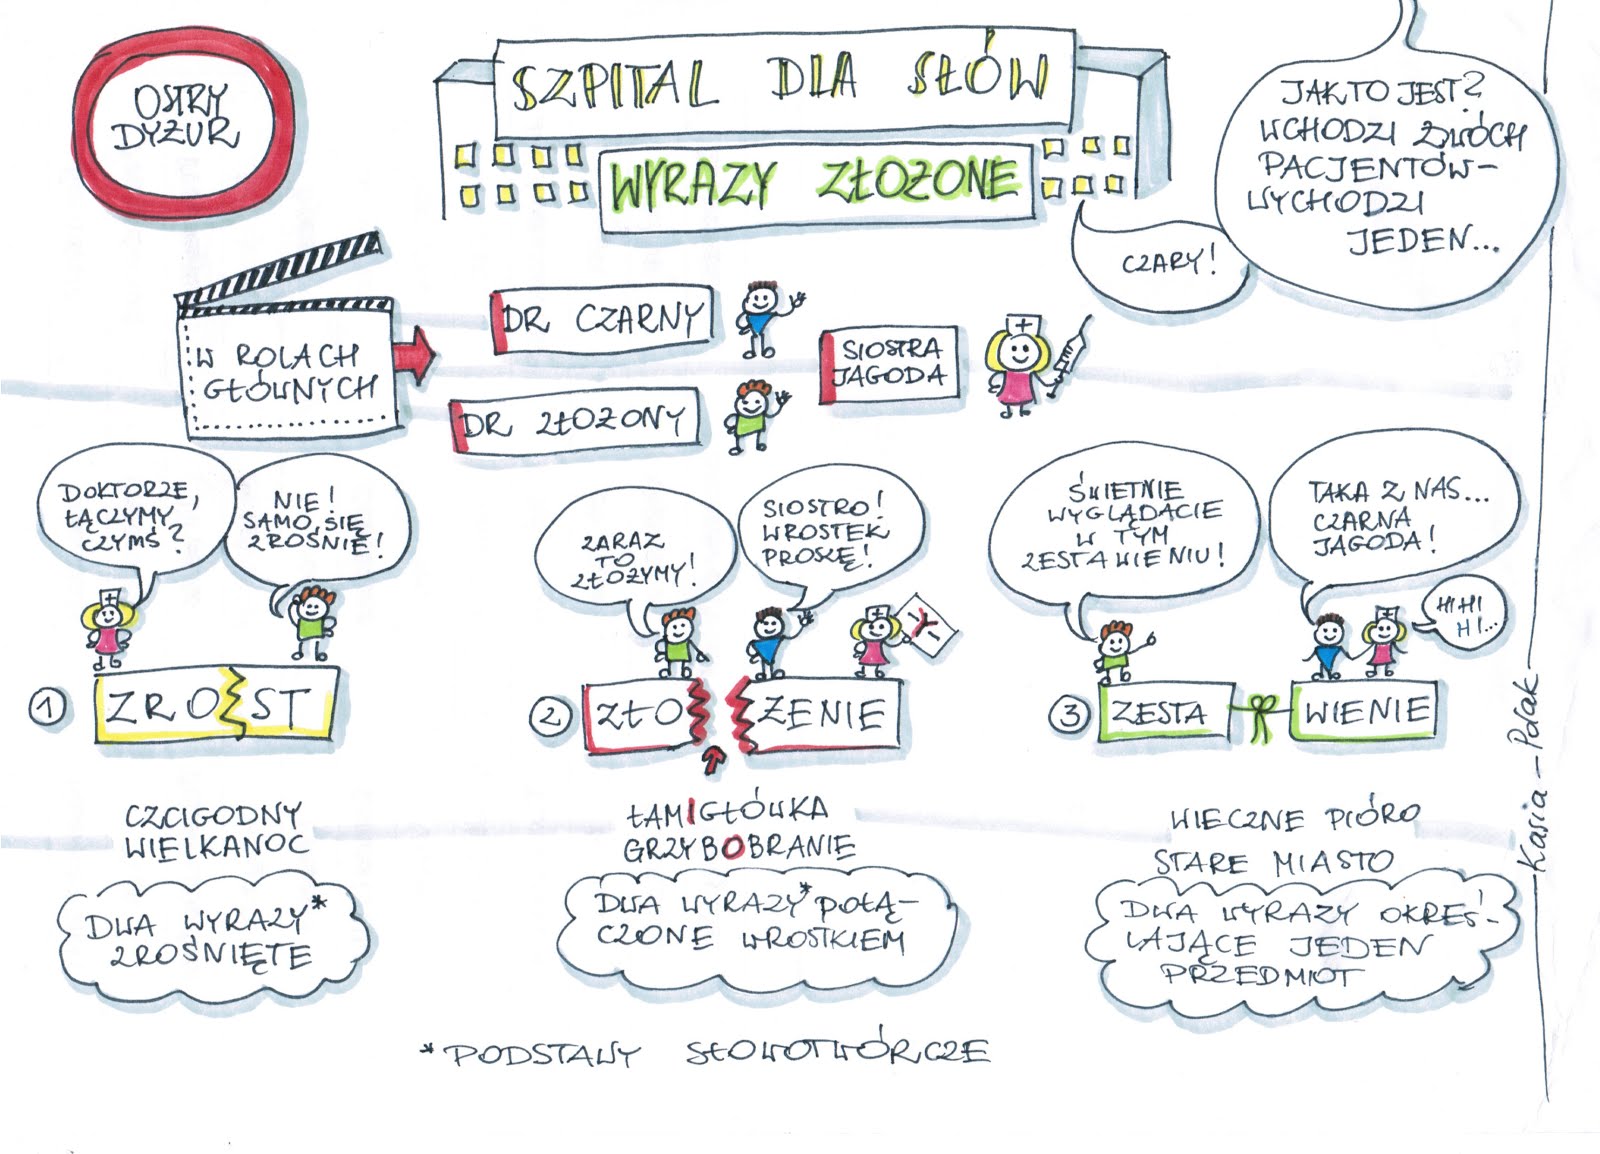 OSTRY
DYŻUR
SZPITAL DLA SŁÓW
WYRAZY ZŁOŻONE
JAK TO JEST?
WCHODZI DWÓCH
PACJENTÓW-
WYCHODZI
JEDEN...
CZARY!
W ROLACH
GŁÓWNYCH
DR CZARNY
DR ZŁOŻONY
SIOSTRA
JAGODA
DOKTORZE,
ŁĄCZYMY
CZYMŚ?
NIE!
SAMO SIĘ
ZROŚNIE!
ZARAZ
TO
ZŁOŻYMY!
SIOSTRO!
WROSTEK
PROSZĘ!
ŚWIETNIE
WYGLĄDACIE
W TYM
ZESTAWIENIU!
TAKA Z NAS...
CZARNA
JAGODA!
HI HI
HI...
1 ZROST
2 ZŁO ŻENIE
3 ZESTA WIENIE
CZCIGODNY
WIELKANOC
DWA WYRAZY*
ZROŚNIĘTE
ŁAMIGŁÓWKA
GRZYBOBRANIE
DWA WYRAZY* POŁĄ-
CZONE WROSTKIEM
WIECZNE PIÓRO
STARE MIASTO
DWA WYRAZY OKREŚ-
LAJĄCE JEDEN
PRZEDMIOT
*PODSTAWY SŁOWOTWÓRCZE
Kasia-Polak-